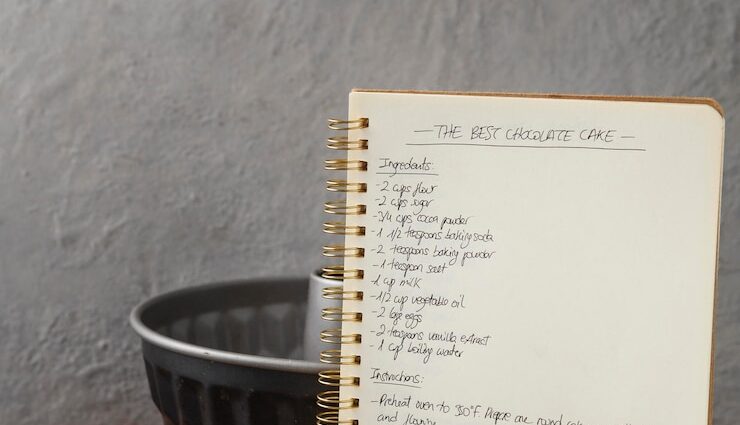 — THE BEST CHOCOLATE CAKE —
Ingredients:
-2 cups flour
-2 cups sugar
-3/4 cups cocoa powder
-1 1/2 teaspoons baking soda
-2 teaspoons baking powder
-1 teaspoon salt
-1 cup milk
-1/2 cup vegetable oil
-2 large eggs
-2 teaspoons vanilla extract
-1 cup boiling water
Instructions:
-Preheat oven to 350°F. Prepare one round
and flouring